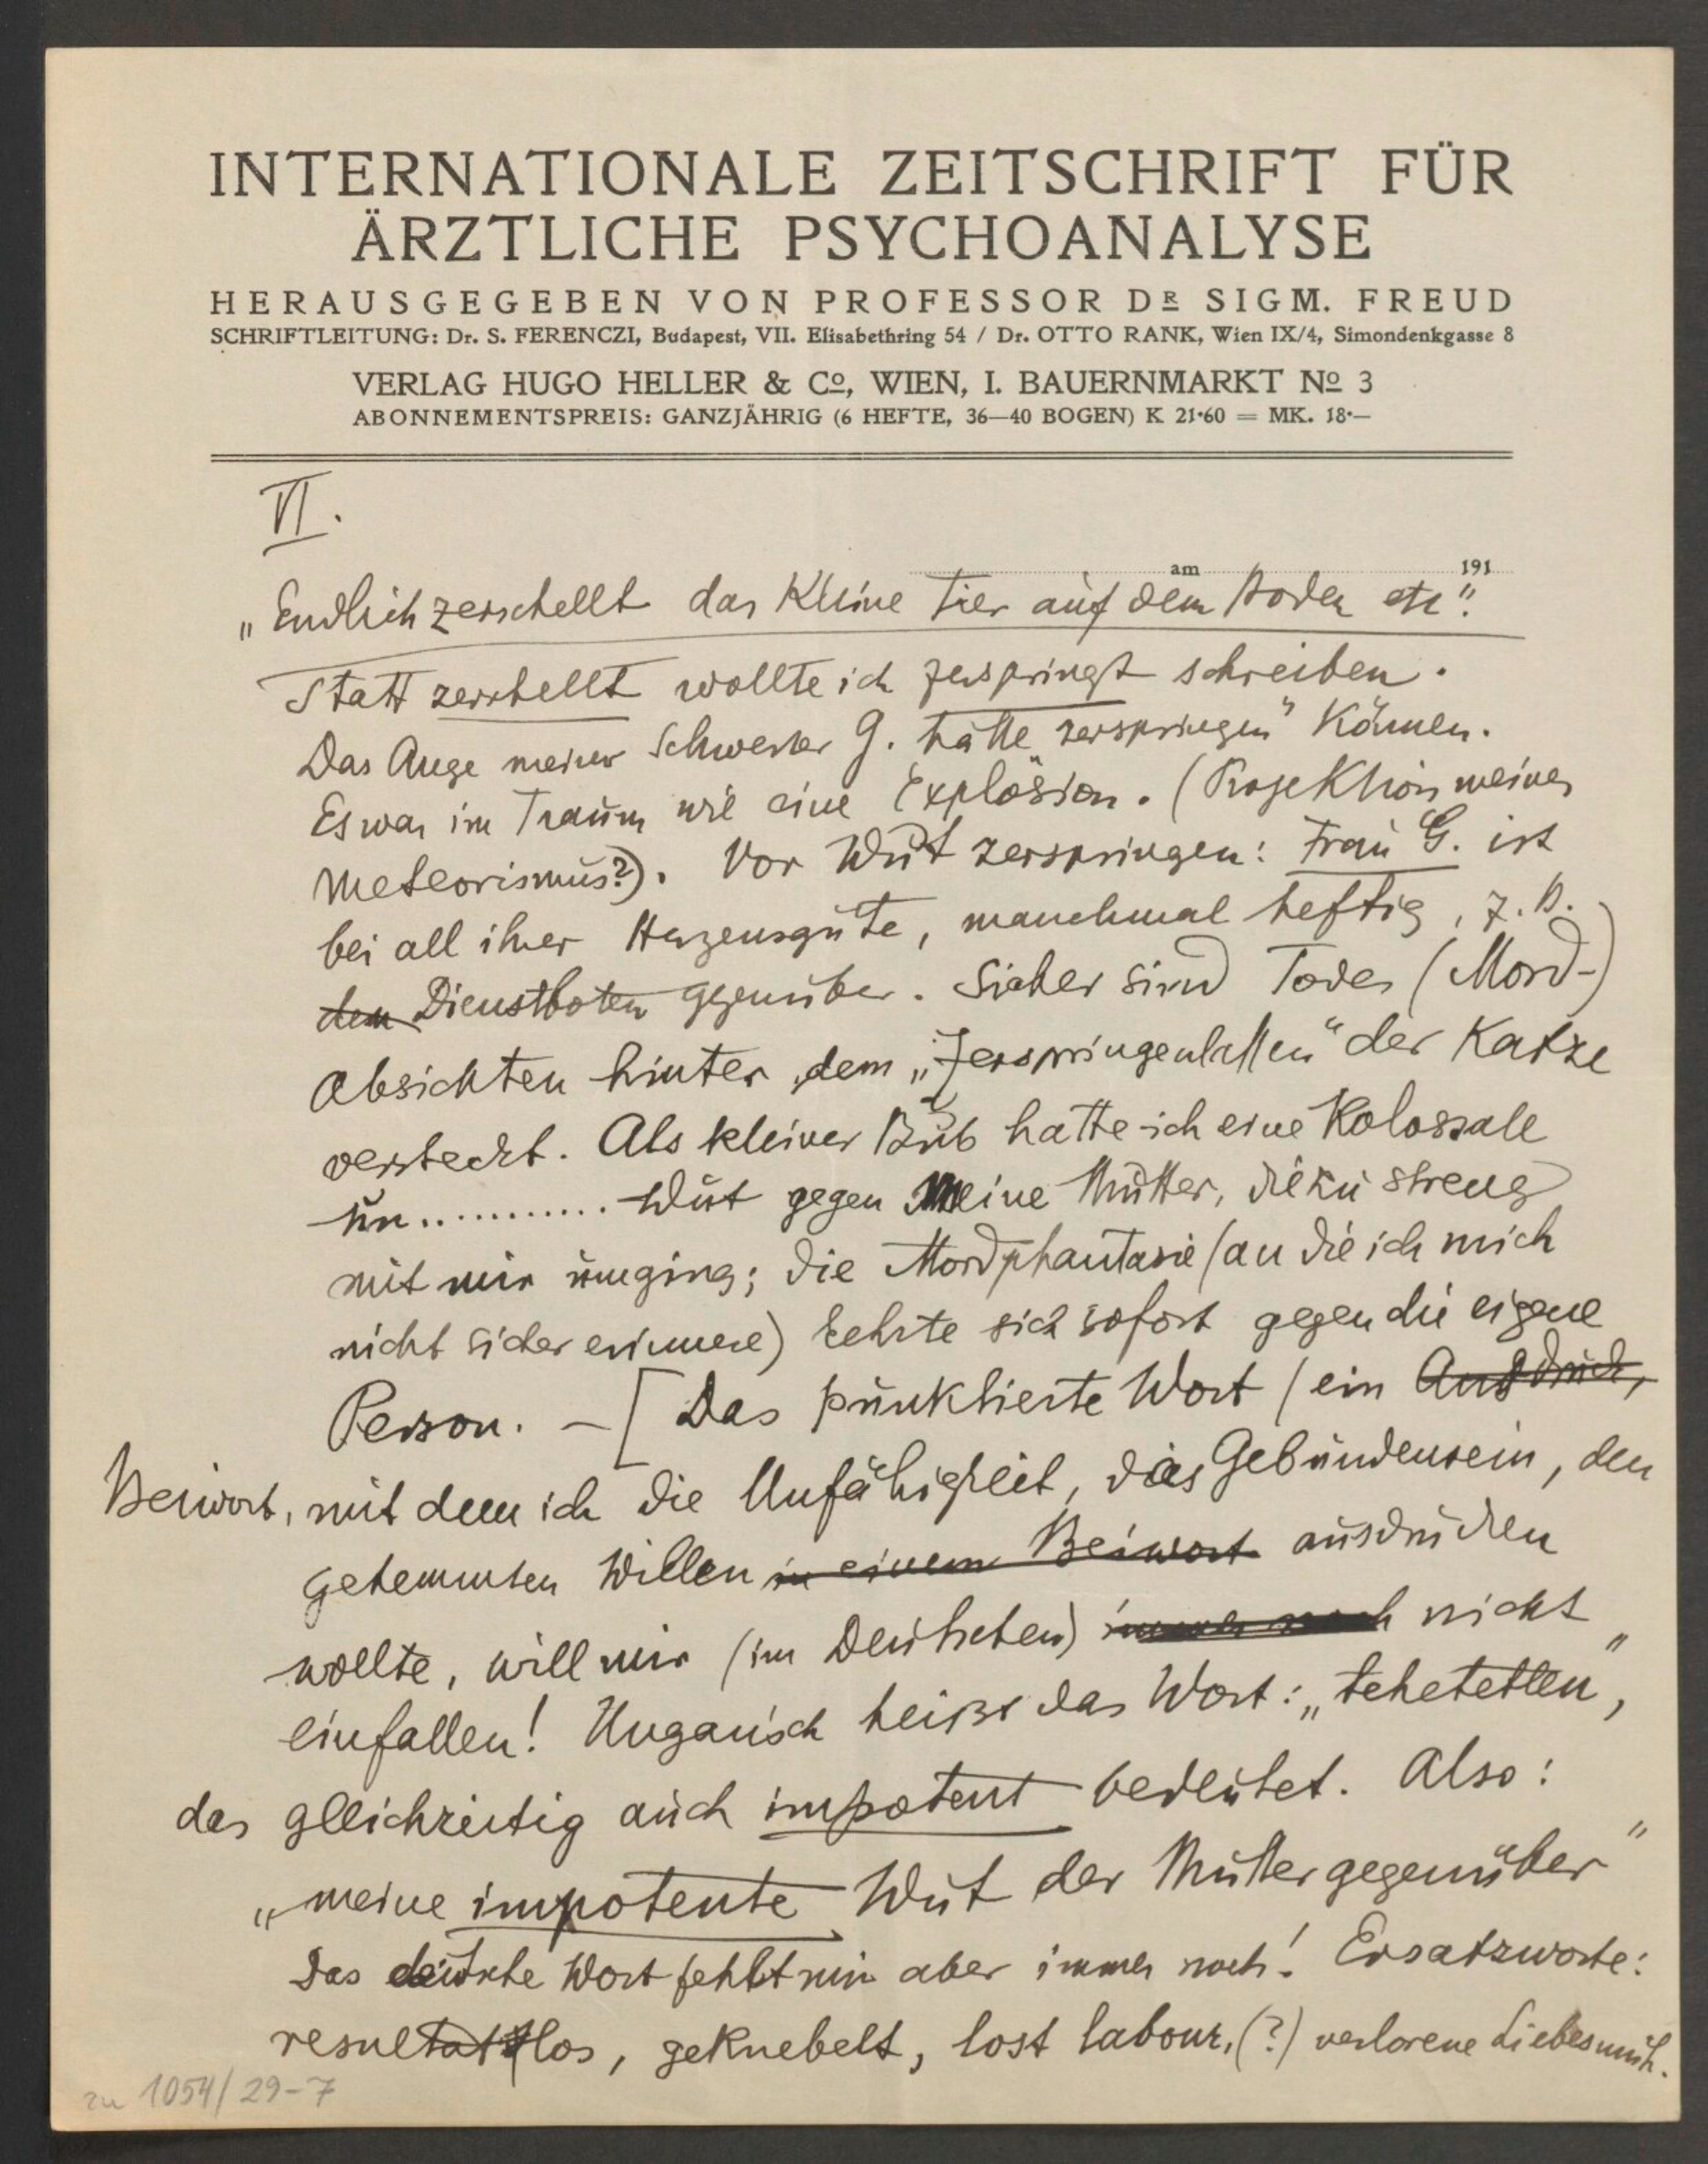 INTERNATIONALE ZEITSCHRIFT FÜR
ÄRZTLICHE PSYCHOANALYSE
HERAUSGEGEBEN VON PROFESSOR DR SIGM. FREUD
SCHRIFTLEITUNG: Dr. S. FERENCZI, Budapest, VII. Elisabethring 54 / Dr. OTTO RANK, Wien IX/4, Simondenkgasse 8
VERLAG HUGO HELLER & Co, WIEN, I. BAUERNMARKT No 3
ABONNEMENTSPREIS: GANZJÄHRIG (6 HEFTE, 36—40 BOGEN) K 21·60 = MK. 18·—
VI.
am 191
„Endlich zerschellt das kleine Tier auf dem Boden etc".
Statt zerschellt wollte ich zerspringt schreiben.
Das Auge meiner Schwester G. hätte „zerspringen" können.
Es war im Traum wie eine Explosion. (Projektion meines
Meteorismus?). Vor Wut zerspringen: Frau G. ist
bei all ihrer Herzensgüte, manchmal heftig, z.B.
den Dienstboten gegenüber. Sicher sind Todes (Mord-)
absichten hinter dem „Zerspringenlassen" der Katze
versteckt. Als kleiner Bub hatte ich eine kolossale
un............ Wut gegen meine Mutter, die zu streng
mit mir umging; die Mordphantasie (an die ich mich
nicht sicher erinnere) kehrte sich sofort gegen die eigene
Person. – [Das punktierte Wort (ein Ausdruck,
Beiwort, mit dem ich die Unfähigkeit, das Gebundensein, den
gehemmten Willen in einem Beiwort ausdrücken
wollte, will mir (im Deutschen) immer noch nicht
einfallen! Ungarisch heißt das Wort: „tehetetlen",
das gleichzeitig auch impotent bedeutet. Also:
„meine impotente Wut der Mutter gegenüber"
Das deutsche Wort fehlt mir aber immer noch! Ersatzworte:
resultatlos, geknebelt, lost labour, (?) verlorene Liebesmüh.
zu 1054/29-7